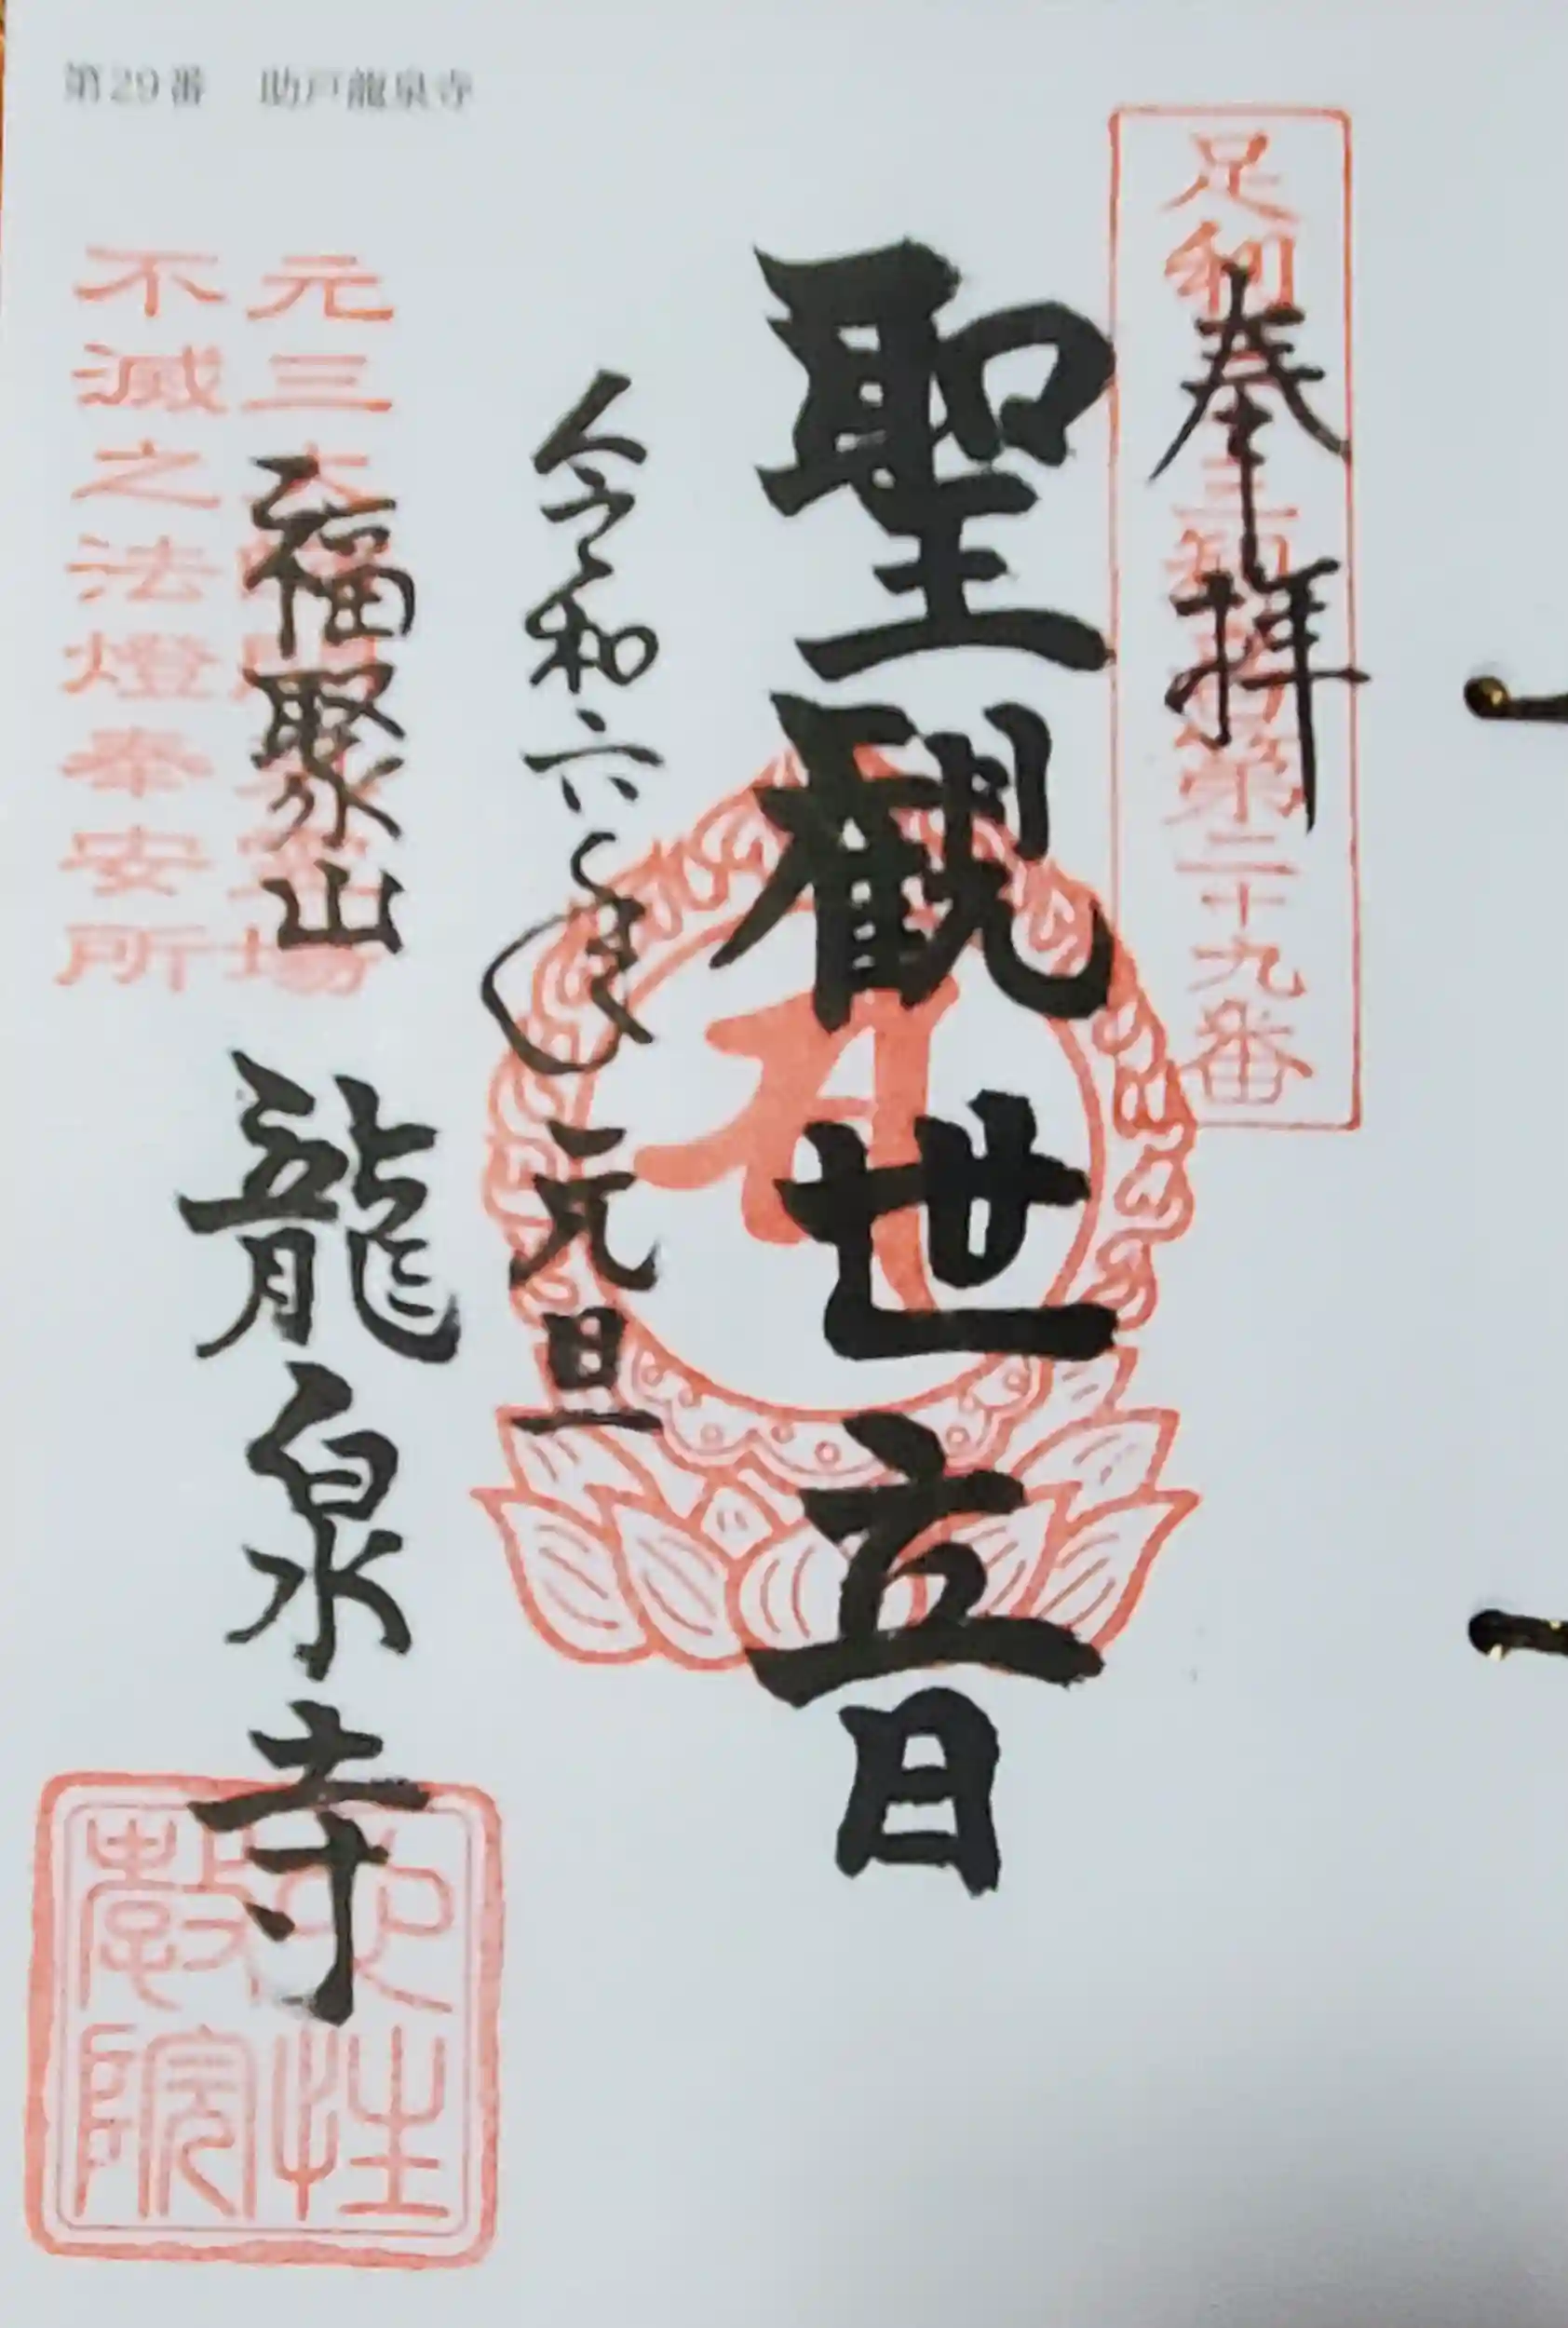 第29番 助戸龍泉寺
奉拝
足利三十三観音第二十九番
聖観世音
令和六年元旦
福聚山 龍泉寺
元三大
不滅之法燈奉安所
教院